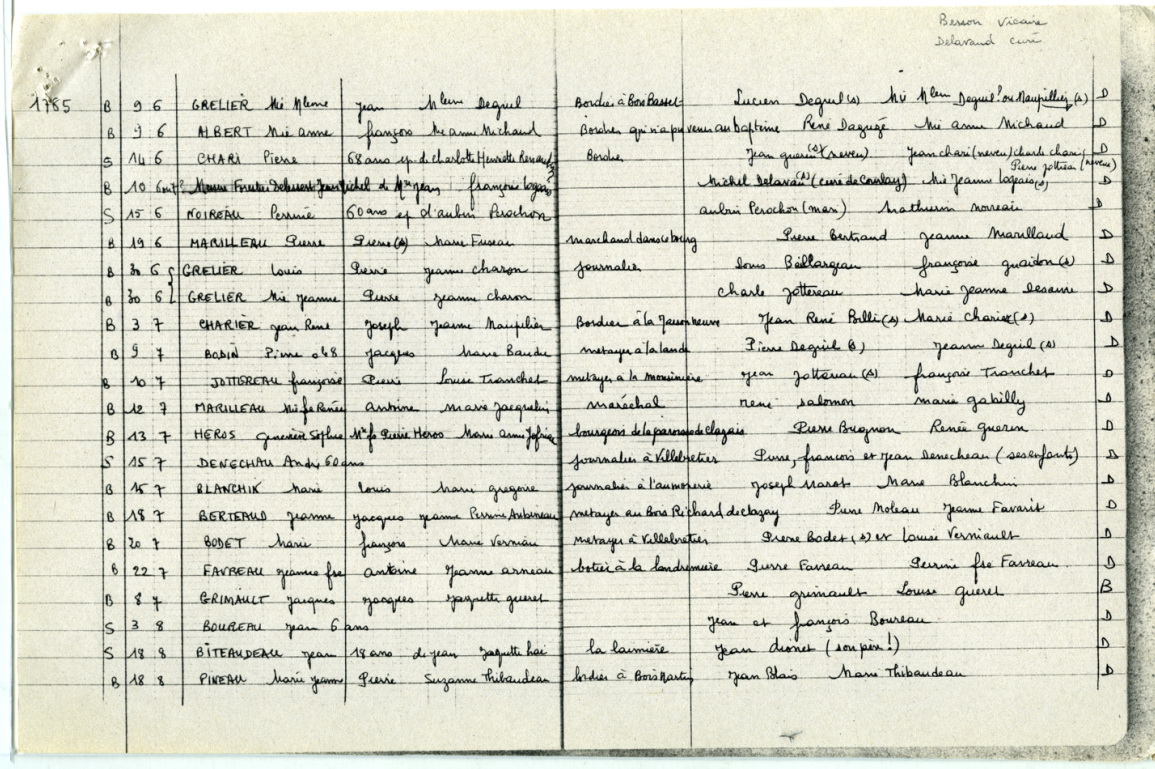 Besson Vicaire
Delavaud curé
1785 B 9 6 GRELIER Mie Mleine Jean Mleine Degriel Bordier à Bois Basset Lucien Degriel (s) Mie Mleine Degriel? ou Maupillier (s) D
B 9 6 ALBERT Mie anne françois Mie anne Michaud Bordier qui n'a pu venir au baptême René Daguzé Mie anne Michaud D
S 14 6 CHARI Pierre 68 ans ep. de charlotte Henriette Renaud Bordier Jean guerin (s) (neveu) Jean chari (neveu) charle chari D
Pierre jottreau (neveu)
B 10 6 Michel de Mre Jean françoise Michel Delavau (s) (curé de Coulay) Mie Jeanne (s) D
S 15 6 NOIREAU Perrine 60 ans ep d'aubin Perochon aubin Perochon (mari) Mathurin noireau D
B 19 6 MARILLEAU Pierre Pierre (s) Marie Fuseau marchand dans ce bourg Pierre Bertrand Jeanne Marillaud D
B 30 6 GRELIER Louis Pierre Jeanne charon journalier Louis Baillargeau françoise guaidon (s) D
B 30 6 GRELIER Mie Jeanne Pierre Jeanne charon Charle Jottereau Marie Jeanne Desanre D
B 3 7 CHARIER Jean René Joseph Jeanne Maupilier Bordier à la Jauonneuve Jean René Billi (s) Marie Charier (s) D
B 9 7 BODIN Pierre Jacques Marie Baudu metayer à la lande Pierre Degriel (s) Jeanne Degriel (s) D
B 10 7 JOTTEREAU françoise Pierre Louise Tranchet metayer à la monsiniere Jean Jottereau (s) françoise Tranchet D
B 12 7 MARILLEAU Mie fe Renée Antoine Marie Jacquelin maréchal René salomon marie gabilly D
B 13 7 HEROS Geneviève Sophie Mre fs Pierre Heros Marie anne Jofrion bourgeois de la paroisse de clazais Pierre Brugnon Renée guerin D
S 15 7 DENECHAU André 60 ans journalier à Villebretier Pierre, francois et Jean Denecheau (ses enfants) D
B 15 7 BLANCHIN Marie Louis Marie gregoire journalier à l'aumonerie Joseph Marot Marie Blanchin D
B 18 7 BERTEAUD Jeanne Jacques Jeanne Perrine Aubineau metayer au Bois Richard de clazay Pierre Moleau Jeanne Favarit D
B 20 7 BODET Marie françois Marie Verniau metayer à Villebretier Pierre Bodet (s) et Louise Verniault D
B 22 7 FAVREAU Jeanne fse antoine Jeanne arneau botier à la landremiere Pierre Favreau Perrine fse Favreau D
B 8 7 GRIMAULT Jacques Jacques Jaquette gueret Pierre grimault Louise Gueret B
S 3 8 BOUREAU Jean 6 ans Jean et françois Boureau D
S 18 8 BITEAUDEAU Jean 18 ans de jean Jaquette hai la laimière Jean dionet (son père!) D
B 18 8 PINEAU Marie Jeanne Pierre Suzanne Thibaudeau bordier à Bois Martin Jean Blais Marie Thibaudeau D